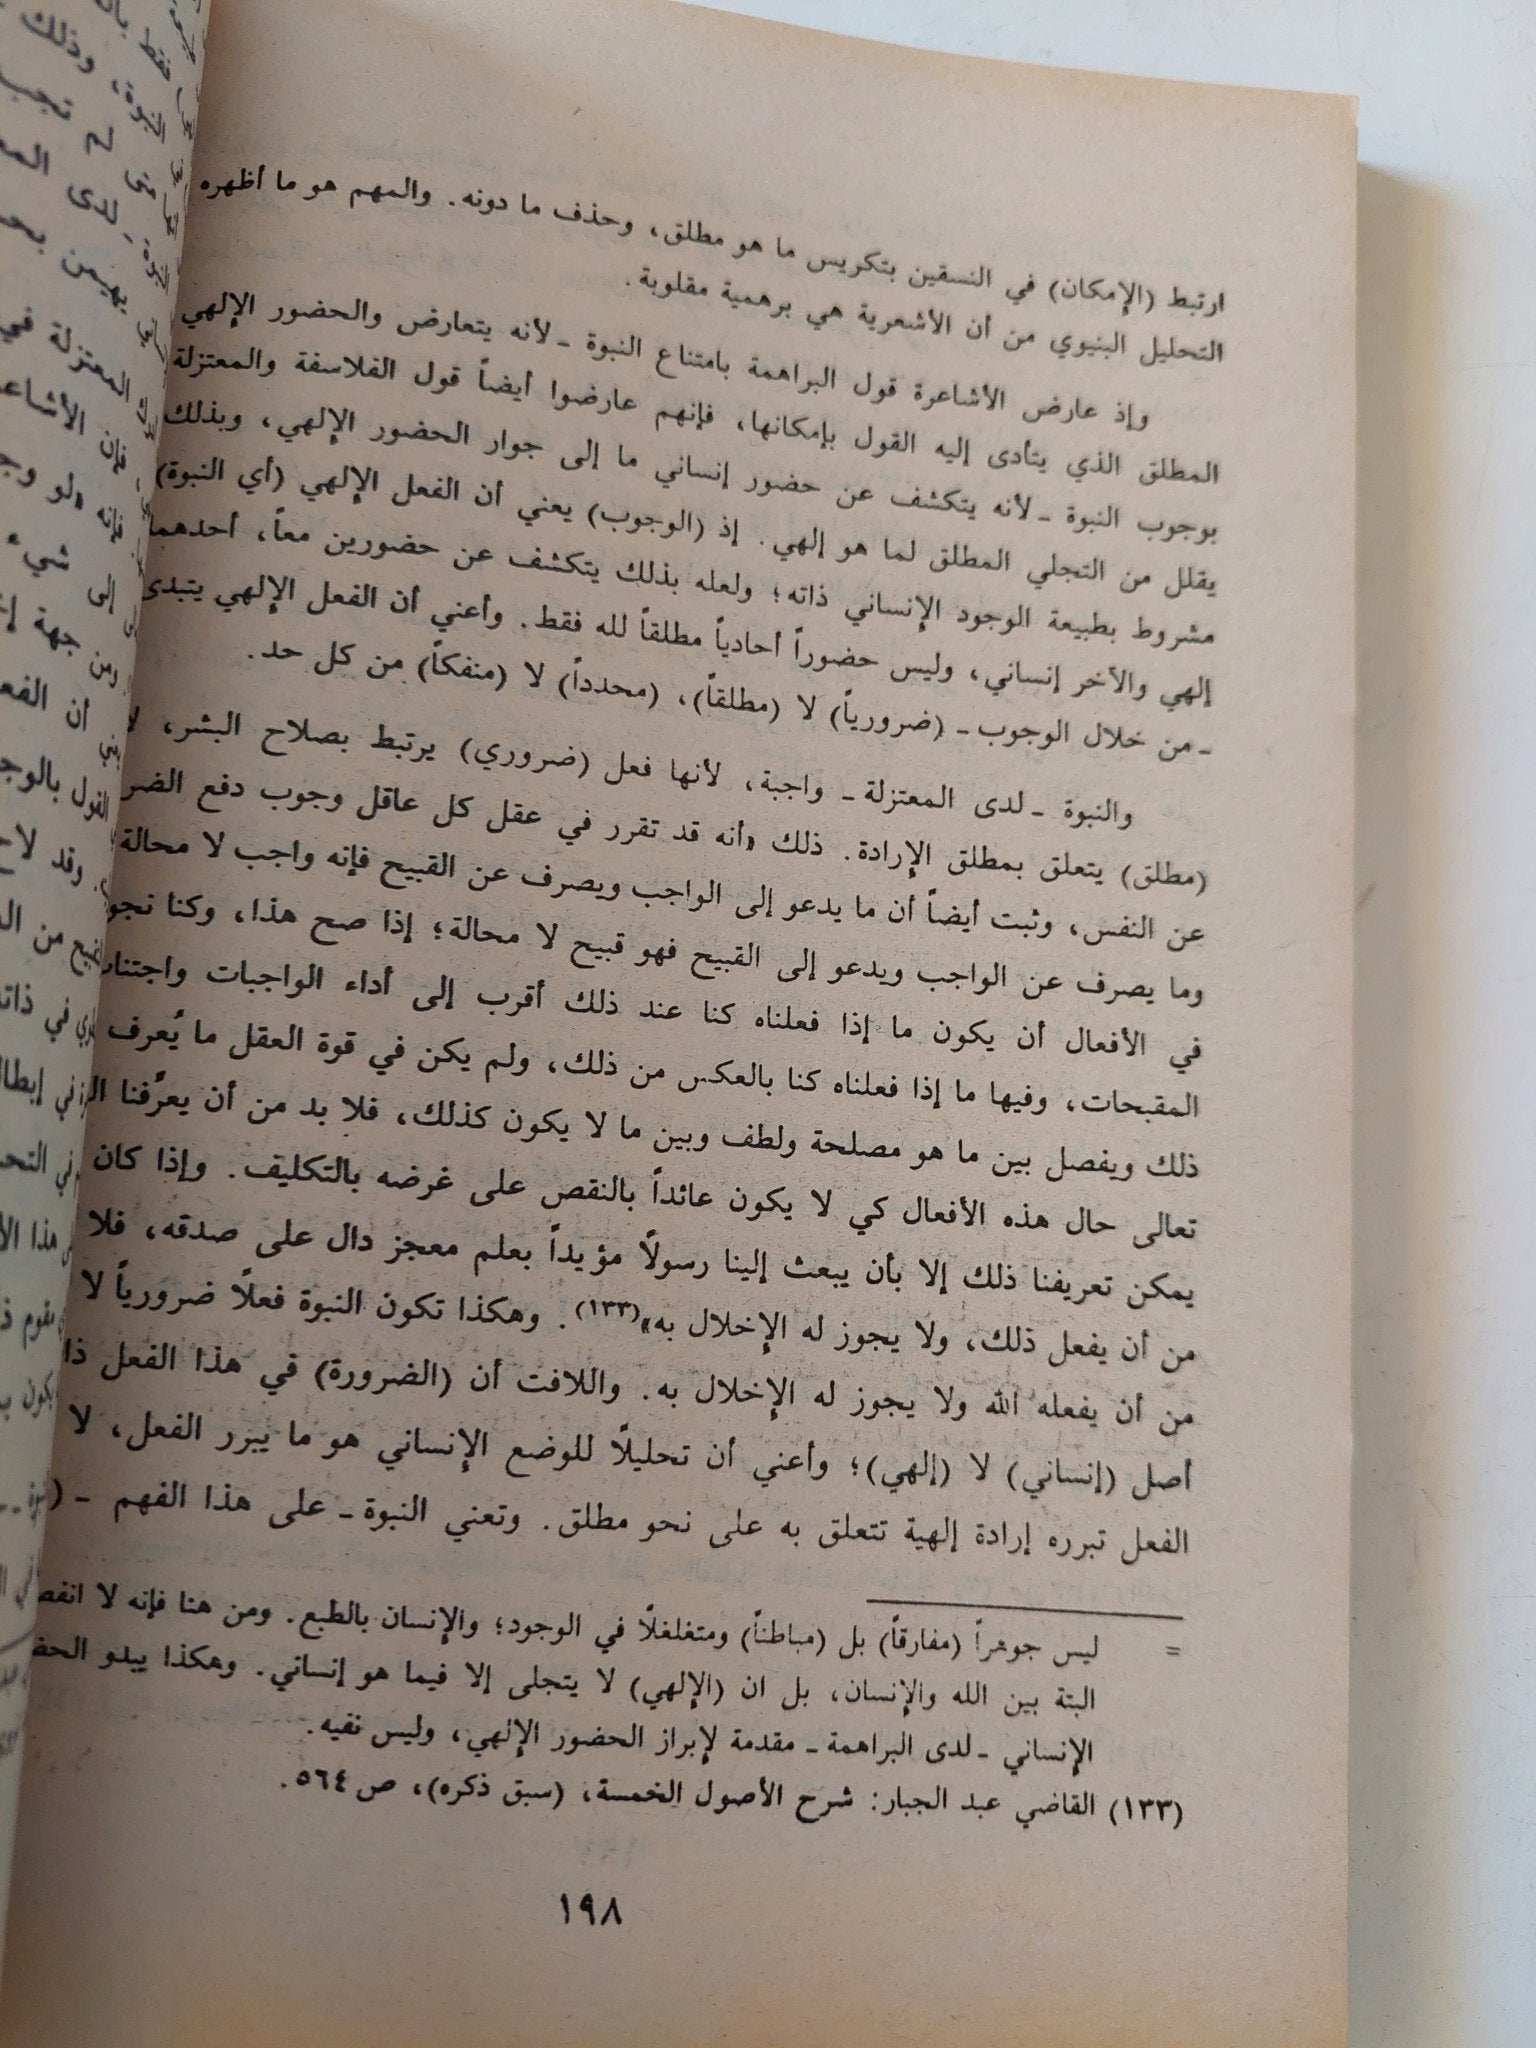 ارتبط (الإمكان) في النسقين بتكريس ما هو مطلق، وحذف ما دونه. والمهم هو ما أظهره
التحليل البنيوي من أن الأشعرية هي برهمية مقلوبة.
وإذ عارض الأشاعرة قول البراهمة بامتناع النبوة ـ لأنه يتعارض والحضور الإلهي
المطلق الذي يتأدى إليه القول بإمكانها، فإنهم عارضوا أيضاً قول الفلاسفة والمعتزلة
بوجوب النبوة ـ لأنه يتكشف عن حضور إنساني ما إلى جوار الحضور الإلهي، وبذلك
يقلل من التجلي المطلق لما هو إلهي. إذ (الوجوب) يعني أن الفعل الإلهي (أي النبوة)
مشروط بطبيعة الوجود الإنساني ذاته؛ ولعله بذلك يتكشف عن حضورين معاً، أحدهما
إلهي والآخر إنساني، وليس حضوراً أحادياً مطلقاً لله فقط. وأعني أن الفعل الإلهي يتبدى
ـ من خلال الوجوب ـ (ضرورياً) لا (مطلقاً)، (محدداً) لا (منفكاً) من كل حد.
والنبوة ـ لدى المعتزلة ـ واجبة، لأنها فعل (ضروري) يرتبط بصلاح البشر، لا
(مطلق) يتعلق بمطلق الإرادة. ذلك «أنه قد تقرر في عقل كل عاقل وجوب دفع الضر
عن النفس، وثبت أيضاً أن ما يدعو إلى الواجب ويصرف عن القبيح فإنه واجب لا محالة؛
وما يصرف عن الواجب ويدعو إلى القبيح فهو قبيح لا محالة؛ إذا صح هذا، وكنا نجو
في الأفعال أن يكون ما إذا فعلناه كنا عند ذلك أقرب إلى أداء الواجبات واجتناب
المقبحات، وفيها ما إذا فعلناه كنا بالعكس من ذلك، ولم يكن في قوة العقل ما يُعرف
ذلك ويفصل بين ما هو مصلحة ولطف وبين ما لا يكون كذلك، فلا بد من أن يعرِّفنا
تعالى حال هذه الأفعال كي لا يكون عائداً بالنقص على غرضه بالتكليف. وإذا كان
يمكن تعريفنا ذلك إلا بأن يبعث إلينا رسولاً مؤيداً بعلم معجز دال على صدقه، فلا
من أن يفعل ذلك، ولا يجوز له الإخلال به»(١٣٣). وهكذا تكون النبوة فعلاً ضرورياً لا
من أن يفعله الله ولا يجوز له الإخلال به. واللافت أن (الضرورة) في هذا الفعل ذا
أصل (إنساني) لا (إلهي)؛ وأعني أن تحليلاً للوضع الإنساني هو ما يبرر الفعل، لا
الفعل تبرره إرادة إلهية تتعلق به على نحو مطلق. وتعني النبوة ـ على هذا الفهم ـ
= ليس جوهراً (مفارقاً) بل (مباطناً) ومتغلغلاً في الوجود؛ والإنسان بالطبع. ومن هنا فإنه لا
البتة بين الله والإنسان، بل ان (الإلهي) لا يتجلى إلا فيما هو إنساني. وهكذا يبدو
الإنساني ـ لدى البراهمة ـ مقدمة لإبراز الحضور الإلهي، وليس نفيه.
(١٣٣) القاضي عبد الجبار: شرح الأصول الخمسة، (سبق ذكره)، ص ٥٦٤.
١٩٨